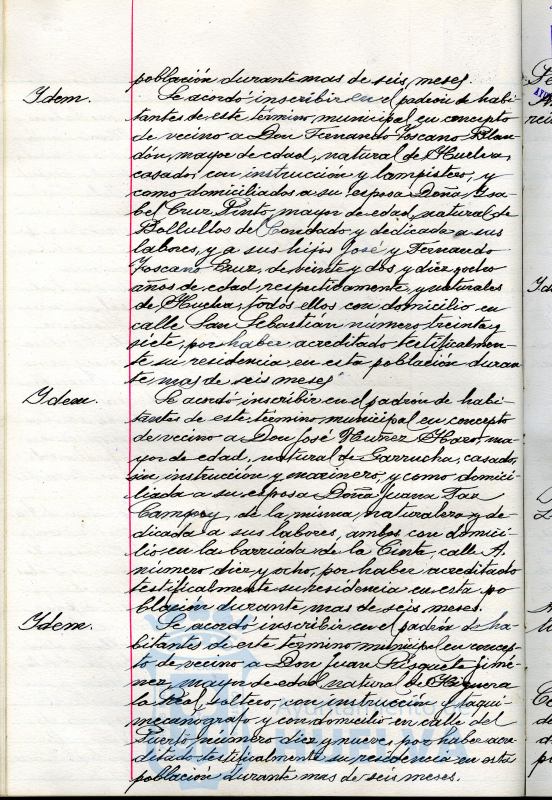 población durante mas de seis meses.
Ydem. Se acordó inscribir en el padrón de habi-
tantes de este término municipal en concepto
de vecino a Don Fernando Toscano Blan-
dón, mayor de edad, natural de Huelva,
casado, con instrucción y lampistero, y
como domiciliados a su esposa Doña Isa-
bel Cruz Pinto, mayor de edad, natural de
Bollullos del Condado y dedicada a sus
labores, y a sus hijos José y Fernando
Toscano Cruz, de veinte y dos y diez y ocho
años de edad, respectivamente, y naturales
de Huelva, todos ellos con domicilio en
calle San Sebastián número treinta y
siete, por haber acreditado testificalmen-
te su residencia en esta población duran-
te mas de seis meses.
Ydem. Se acordó inscribir en el padrón de habi-
tantes de este término municipal en concepto
de vecino a Don José Nuñez Haro, ma-
yor de edad, natural de Garrucha, casado,
sin instrucción y marinero, y como domici-
liada a su esposa Doña Juana
de la misma naturaleza y de-
dicada a sus labores, ambos con domici-
lio en la barriada de la Cinta, calle A,
número diez y ocho, por haber acreditado
testificalmente su residencia en esta po
blación durante mas de seis meses.
Ydem. Se acordó inscribir en el padrón de ha-
bitantes de este término municipal en concep-
to de vecino a Don Juan Jimé-
nez, mayor de edad, natural de Higuera
la Real, soltero, con instrucción y taqui-
mecanografo y con domicilio en calle del
Puerto número diez y nueve, por haber acre-
ditado testificalmente su residencia en esta
población durante mas de seis meses.
Ayuntamiento de
HUELVA